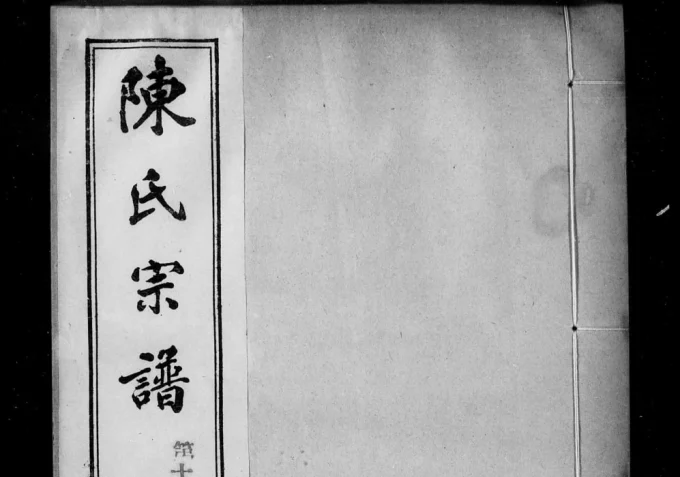 陳氏宗譜
第十